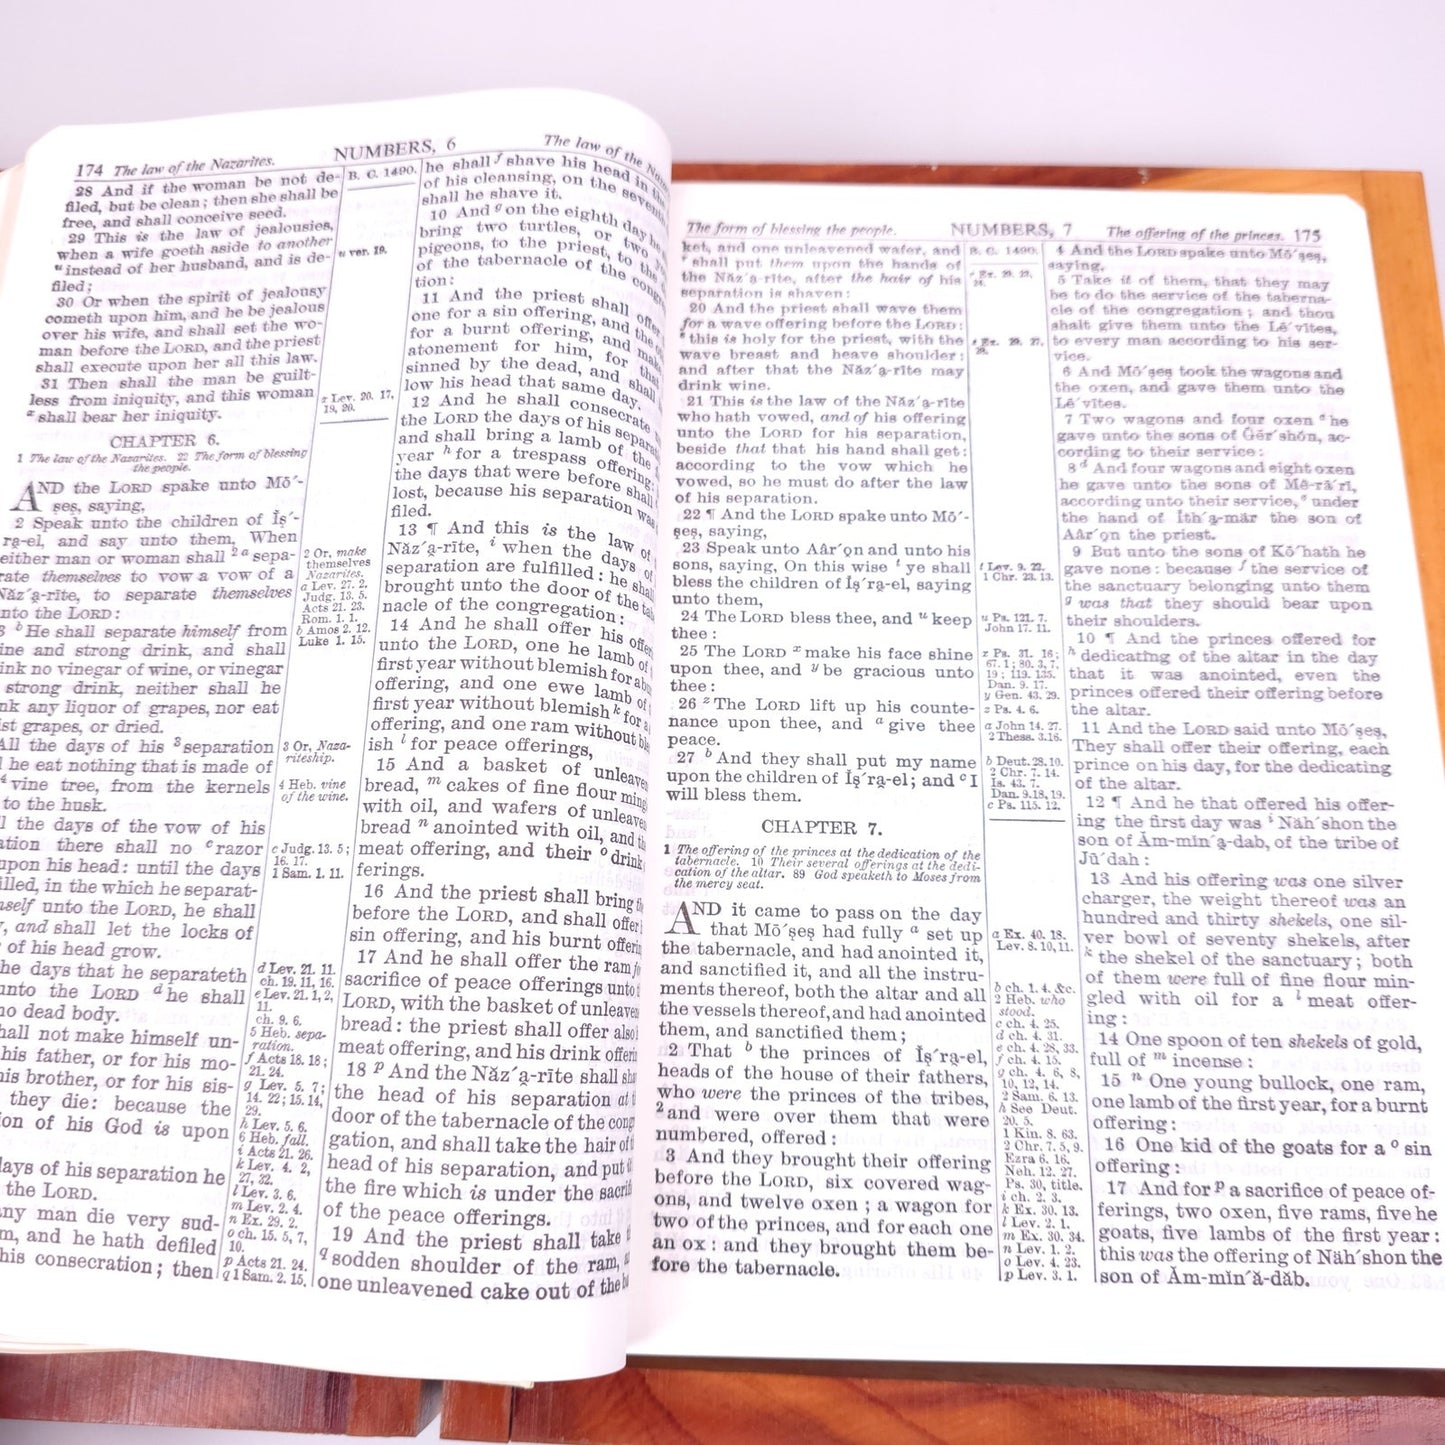 174 The law of the Nazarites. NUMBERS, 6 The law of the
28 And if the woman be not de-
filed, but be clean; then she shall be
free, and shall conceive seed.
29 This is the law of jealousies,
when a wife goeth aside to another
u instead of her husband, and is de-
filed;
30 Or when the spirit of jealousy
cometh upon him, and he be jealous
over his wife, and shall set the wo-
man before the LORD, and the priest
shall execute upon her all this law.
31 Then shall the man be guilt-
less from iniquity, and this woman
x shall bear her iniquity.
CHAPTER 6.
1 The law of the Nazarites. 22 The form of blessing
the people.
AND the LORD spake unto Mō´-
ṣeṣ, saying,
2 Speak unto the children of Ĭṣ´-
rạ-el, and say unto them, When
either man or woman shall 2 a sepa-
rate themselves to vow a vow of a
Năz´ạ-rīte, to separate themselves
unto the LORD:
3 b He shall separate himself from
wine and strong drink, and shall
drink no vinegar of wine, or vinegar
strong drink, neither shall he
any liquor of grapes, nor eat
grapes, or dried.
All the days of his 3 separation
he eat nothing that is made of
4 vine tree, from the kernels
to the husk.
the days of the vow of his
there shall no c razor
upon his head: until the days
in the which he separat-
unto the LORD, he shall
and shall let the locks of
of his head grow.
the days that he separateth
unto the LORD d he shall
no dead body.
not make himself un-
his father, or for his mo-
his brother, or for his sis-
they die: because the
of his God is upon
days of his separation he
the LORD.
any man die very sud-
and he hath defiled
his consecration; then
B. C. 1490.
u ver. 19.
x Lev. 20. 17,
19, 20.
2 Or, make
themselves
Nazarites.
a Lev. 27. 2.
Judg. 13. 5.
Acts 21. 23.
Rom. 1. 1.
b Amos 2. 12.
Luke 1. 15.
3 Or, Naza-
riteship.
4 Heb. vine
of the wine.
c Judg. 13. 5;
16. 17.
1 Sam. 1. 11.
d Lev. 21. 11.
ch. 19. 11, 16.
e Lev. 21. 1, 2,
11.
ch. 9. 6.
5 Heb. sepa-
ration.
f Acts 18. 18;
21. 24.
g Lev. 5. 7;
14. 22; 15. 14,
29.
h Lev. 5. 6.
6 Heb. fall.
i Acts 21. 26.
k Lev. 4. 2,
27, 32.
l Lev. 3. 6.
m Lev. 2. 4.
n Ex. 29. 2.
o ch. 15. 5, 7,
10.
p Acts 21. 24.
q 1 Sam. 2. 15.
he shall f shave his head in the
of his cleansing, on the
shall he shave it.
10 And g on the eighth day he
bring two turtles, or two
pigeons, to the priest, to the
of the tabernacle of the
tion:
11 And the priest shall
one for a sin offering, and the
for a burnt offering, and make
atonement for him, for that
sinned by the dead, and shall
low his head that same day.
12 And he shall consecrate
the LORD the days of his
and shall bring a lamb of the
year h for a trespass offering:
the days that were before shall
lost, because his separation was
filed.
13 ¶ And this is the law of
Năz´ạ-rīte, i when the days of
separation are fulfilled: he shall
brought unto the door of the
nacle of the congregation:
14 And he shall offer his
unto the LORD, one he lamb of
first year without blemish for a
offering, and one ewe lamb of
first year without blemish k for a
offering, and one ram without
ish l for peace offerings,
15 And a basket of
bread, m cakes of fine flour
with oil, and wafers of
bread n anointed with oil, and
meat offering, and their o drink
ferings.
16 And the priest shall bring
before the LORD, and shall offer
sin offering, and his burnt
17 And he shall offer the ram
sacrifice of peace offerings unto
LORD, with the basket of
bread: the priest shall offer also
meat offering, and his drink
18 p And the Năz´ạ-rīte shall
the head of his separation at
door of the tabernacle of the
gation, and shall take the hair of
head of his separation, and put
the fire which is under the
of the peace offerings.
19 And the priest shall take
q sodden shoulder of the ram,
one unleavened cake out of the
The form of blessing the people. NUMBERS, 7 The offering of the princes. 175
ket, and one unleavened wafer, and
r shall put them upon the hands of
the Năz´ạ-rīte, after the hair of his
separation is shaven:
20 And the priest shall wave them
for a wave offering before the LORD:
s this is holy for the priest, with the
wave breast and heave shoulder:
and after that the Năz´ạ-rīte may
drink wine.
21 This is the law of the Năz´ạ-rīte
who hath vowed, and of his offering
unto the LORD for his separation,
beside that that his hand shall get:
according to the vow which he
vowed, so he must do after the law
of his separation.
22 ¶ And the LORD spake unto Mō´-
ṣeṣ, saying,
23 Speak unto Aâr´ọn and unto his
sons, saying, On this wise t ye shall
bless the children of Ĭṣ´rạ-el, saying
unto them,
24 The LORD bless thee, and u keep
thee:
25 The LORD x make his face shine
upon thee, and y be gracious unto
thee:
26 z The LORD lift up his counte-
nance upon thee, and a give thee
peace.
27 b And they shall put my name
upon the children of Ĭṣ´rạ-el; and c I
will bless them.
CHAPTER 7.
1 The offering of the princes at the dedication of the
tabernacle. 10 Their several offerings at the dedi-
cation of the altar. 89 God speaketh to Moses from
the mercy seat.
AND it came to pass on the day
that Mō´ṣeṣ had fully a set up
the tabernacle, and had anointed it,
and sanctified it, and all the instru-
ments thereof, both the altar and all
the vessels thereof, and had anointed
them, and sanctified them;
2 That b the princes of Ĭṣ´rạ-el,
heads of the house of their fathers,
who were the princes of the tribes,
2 and were over them that were
numbered, offered:
3 And they brought their offering
before the LORD, six covered wag-
ons, and twelve oxen; a wagon for
two of the princes, and for each one
an ox: and they brought them be-
fore the tabernacle.
B. C. 1490.
r Ex. 29. 23,
24.
s Ex. 29. 27,
28.
t Lev. 9. 22.
1 Chr. 23. 13.
u Ps. 121. 7.
John 17. 11.
x Ps. 31. 16;
67. 1; 80. 3, 7,
19; 119. 135.
Dan. 9. 17.
y Gen. 43. 29.
z Ps. 4. 6.
a John 14. 27.
2 Thess. 3. 16.
b Deut. 28. 10.
2 Chr. 7. 14.
Is. 43. 7.
Dan. 9. 18, 19.
c Ps. 115. 12.
a Ex. 40. 18.
Lev. 8. 10, 11.
b ch. 1. 4, &c.
2 Heb. who
stood.
c ch. 4. 25.
d ch. 4. 31.
e ch. 4. 28, 33.
f ch. 4. 15.
g ch. 4. 6, 8,
10, 12, 14.
2 Sam. 6. 13.
h See Deut.
20. 5.
1 Kin. 8. 63.
2 Chr. 7. 5, 9.
Ezra 6. 16.
Neh. 12. 27.
Ps. 30, title.
i ch. 2. 3.
k Ex. 30. 13.
l Lev. 2. 1.
m Ex. 30. 34.
n Lev. 1. 2.
o Lev. 4. 23.
p Lev. 3. 1.
4 And the LORD spake unto Mō´ṣeṣ,
saying,
5 Take it of them, that they may
be to do the service of the taberna-
cle of the congregation; and thou
shalt give them unto the Lē´vītes,
to every man according to his ser-
vice.
6 And Mō´ṣeṣ took the wagons and
the oxen, and gave them unto the
Lē´vītes.
7 Two wagons and four oxen c he
gave unto the sons of Ġĕr´shŏn, ac-
cording to their service:
8 d And four wagons and eight oxen
he gave unto the sons of Mĕ-rā´rī,
according unto their service, e under
the hand of Ĭth´ạ-mär the son of
Aâr´ọn the priest.
9 But unto the sons of Kō´hath he
gave none: because f the service of
the sanctuary belonging unto them
g was that they should bear upon
their shoulders.
10 ¶ And the princes offered for
h dedicating of the altar in the day
that it was anointed, even the
princes offered their offering before
the altar.
11 And the LORD said unto Mō´ṣeṣ,
They shall offer their offering, each
prince on his day, for the dedicating
of the altar.
12 ¶ And he that offered his offer-
ing the first day was i Näh´shon the
son of Ăm-mĭn´ạ-dab, of the tribe of
Jū´dah:
13 And his offering was one silver
charger, the weight thereof was an
hundred and thirty shekels, one sil-
ver bowl of seventy shekels, after
k the shekel of the sanctuary; both
of them were full of fine flour min-
gled with oil for a l meat offer-
ing:
14 One spoon of ten shekels of gold,
full of m incense:
15 n One young bullock, one ram,
one lamb of the first year, for a burnt
offering:
16 One kid of the goats for a o sin
offering:
17 And for p a sacrifice of peace of-
ferings, two oxen, five rams, five he
goats, five lambs of the first year:
this was the offering of Näh´shon the
son of Ăm-mĭn´ă-dăb.